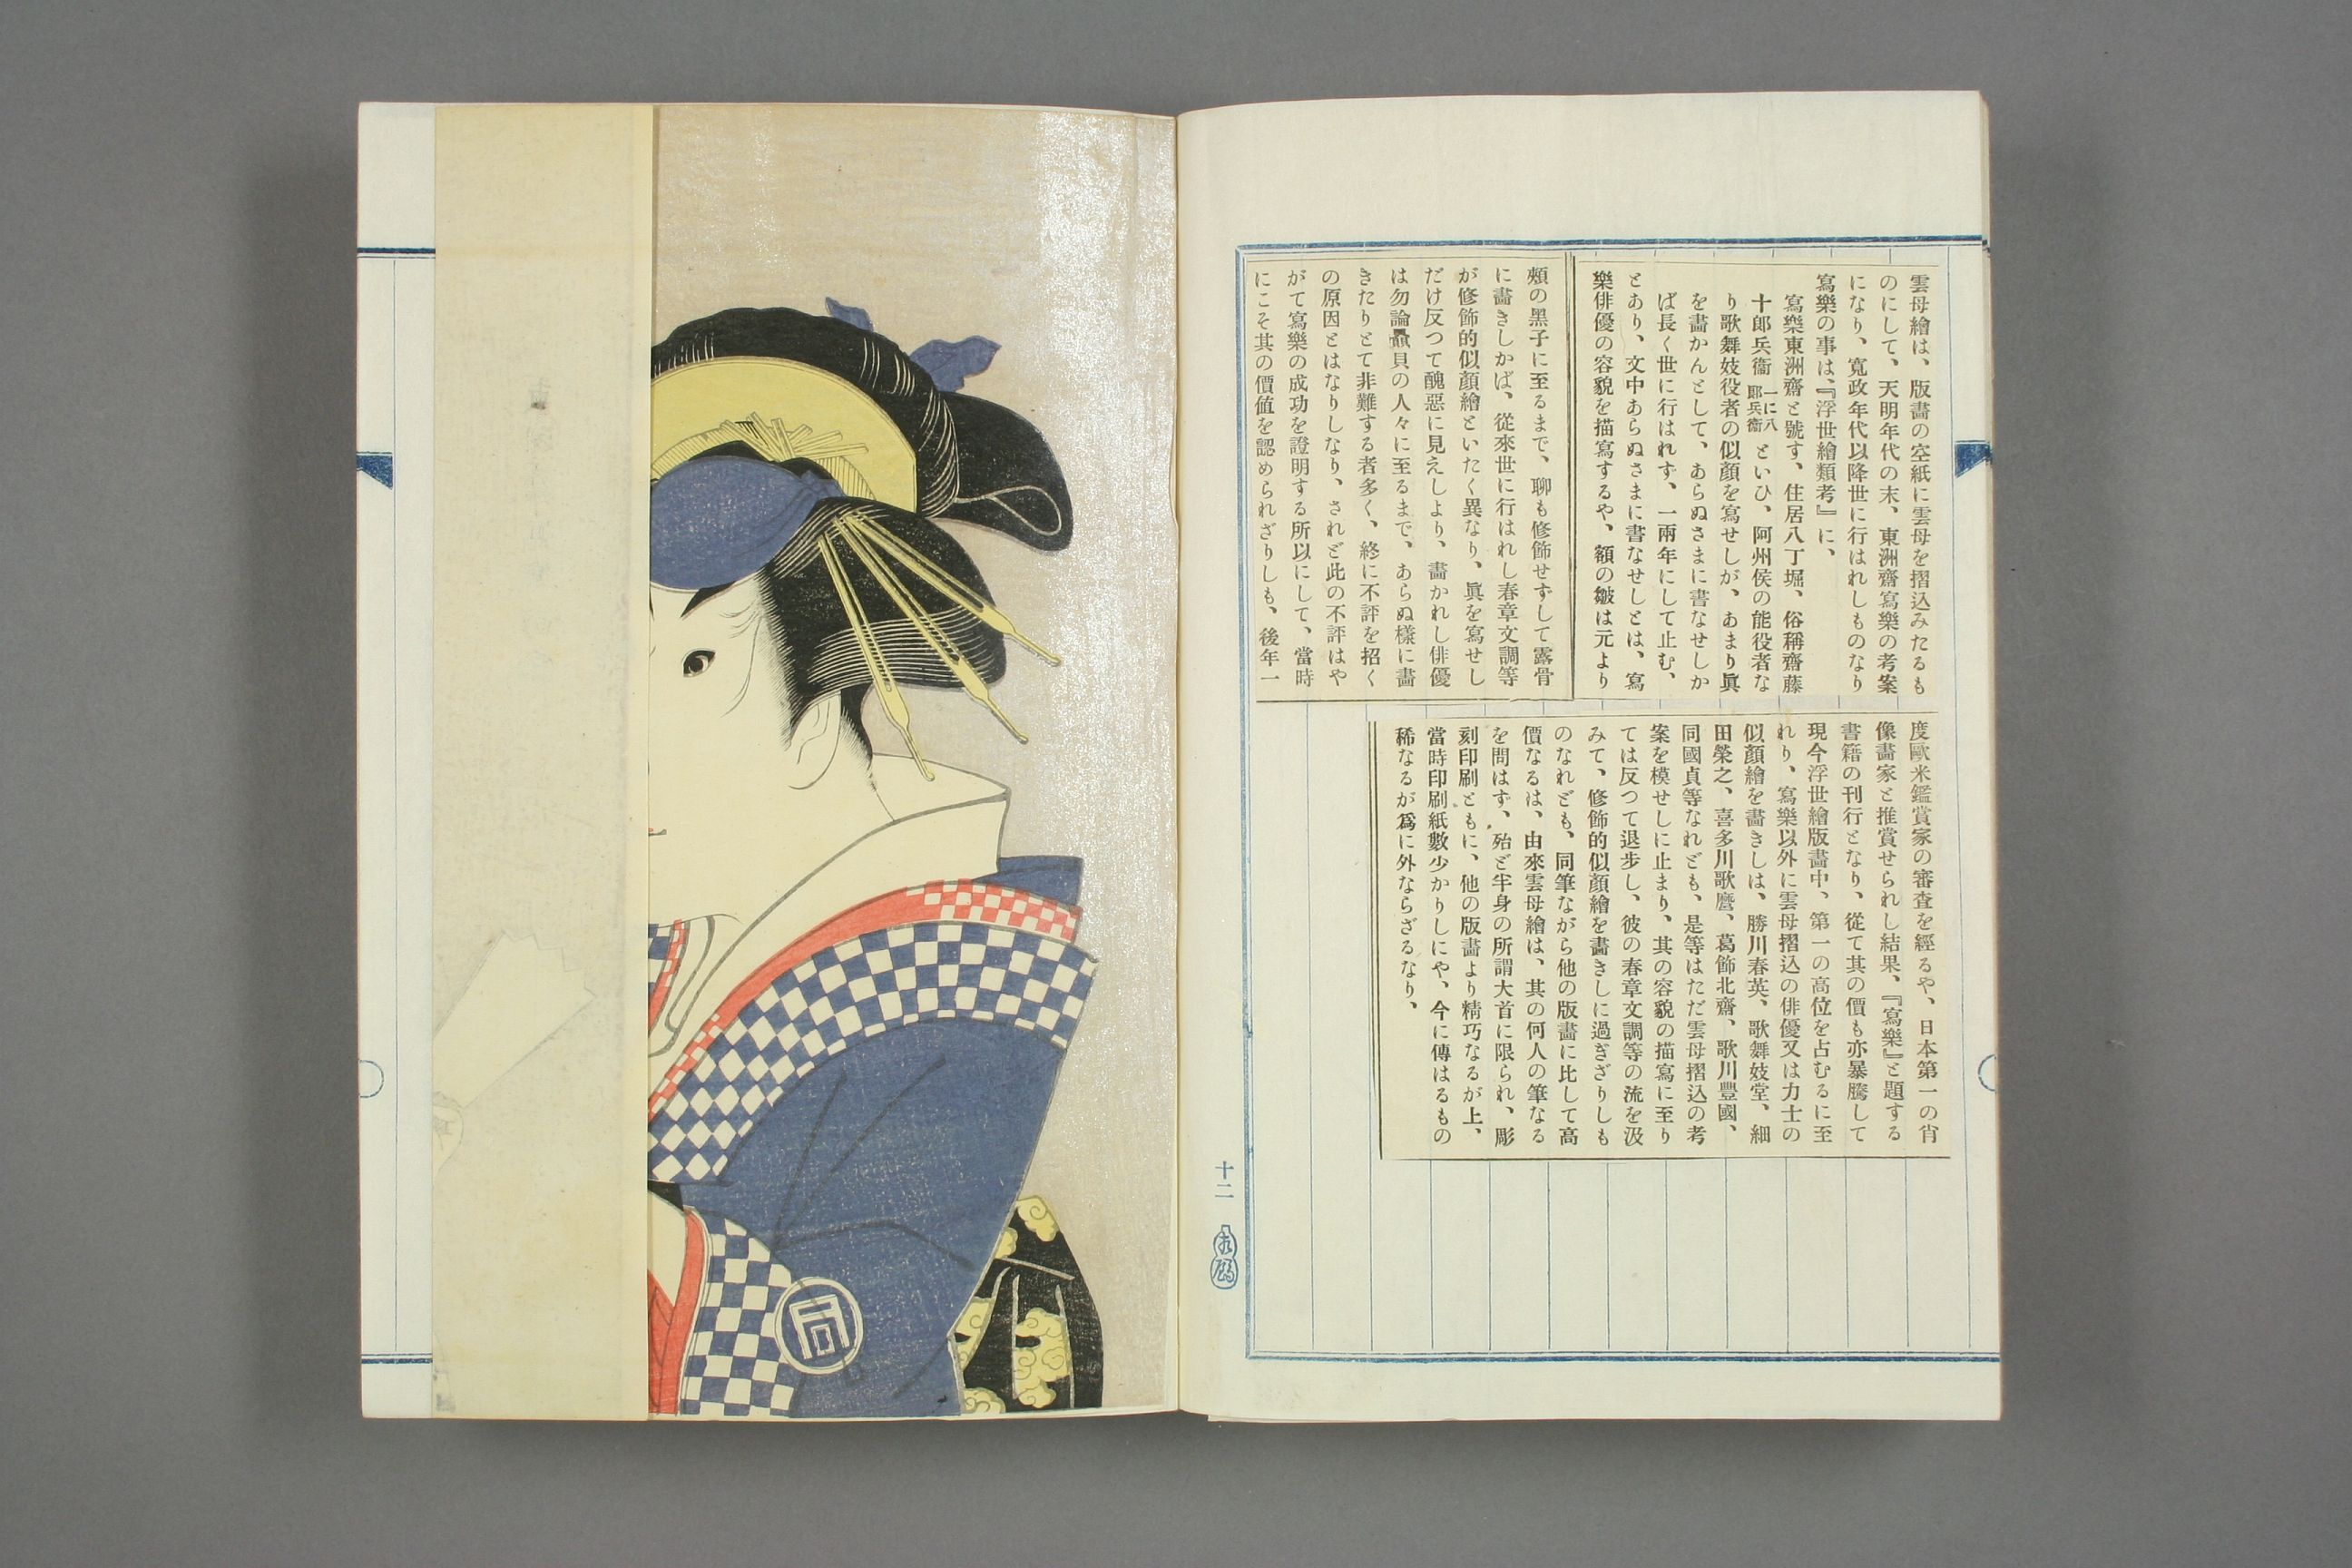 雲母繪は、版畫の空紙に雲母を摺込みたるも
のにして、天明年代の末、東洲齋寫樂の考案
になり、寬政年代以降世に行はれしものなり
寫樂の事は、『浮世繪類考』に、
寫樂東洲齋と號す、住居八丁堀、俗稱齋藤
十郎兵衞 一に八郞兵衞 といひ、阿州侯の能役者な
り歌舞妓役者の似顏を寫せしが、あまり眞
を畵かんとして、あらぬさまに書なせしか
ば長く世に行はれず、一兩年にして止む、
とあり、文中あらぬさまに書なせしとは、寫
樂俳優の容貌を描寫するや、額の皺は元より
頰の黑子に至るまで、聊も修飾せずして露骨
に畵きしかば、從來世に行はれし春章文調等
が修飾的似顏繪といたく異なり、眞を寫せし
だけ反つて醜惡に見えしより、畵かれし俳優
は勿論贔貝の人々に至るまで、あらぬ樣に畵
きたりとて非難する者多く、終に不評を招く
の原因とはなりしなり、されど此の不評はや
がて寫樂の成功を證明する所以にして、當時
にこそ其の價値を認められざりしも、後年一
度歐米鑑賞家の審査を經るや、日本第一の肖
像畵家と推賞せられし結果、『寫樂』と題する
書籍の刊行となり、從て其の價も亦暴騰して
現今浮世繪版畵中、第一の高位を占むるに至
れり、寫樂以外に雲母摺込の俳優又は力士の
似顏繪を畵きしは、勝川春英、歌舞妓堂、細
田榮之、喜多川歌麿、葛飾北齋、歌川豐國、
同國貞等なれども、是等はただ雲母摺込の考
案を模せしに止まり、其の容貌の描寫に至り
ては反つて退步し、彼の春章文調等の流を汲
みて、修飾的似顏繪を畵きしに過ぎざりしも
のなれども、同筆ながら他の版畵に比して高
價なるは、由來雲母繪は、其の何人の筆なる
を問はず、殆ど半身の所謂大首に限られ、彫
刻印刷ともに、他の版畵より精巧なるが上、
當時印刷紙數少かりしにや、今に傳はるもの
稀なるが爲に外ならざるなり、
十二